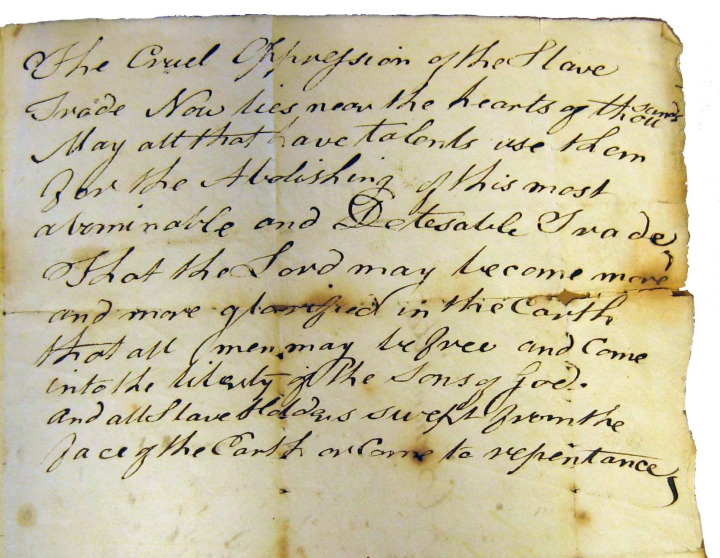 The Cruel Oppression of the Slave
Trade Now lies near the hearts of thousands
May all that have talents use them
For the Abolishing of this most
abominable and Detesable Trade,
That the Lord may become more
and more glorified in the Earth
that all men may be free and Come
into the liberty of the Sons of God.
And all Slave Holders swept from the
face of the Earth or Come to repentance,